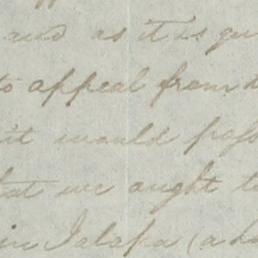 and as it is
to appeal from
it would
that we ought to
in Jalapa (a